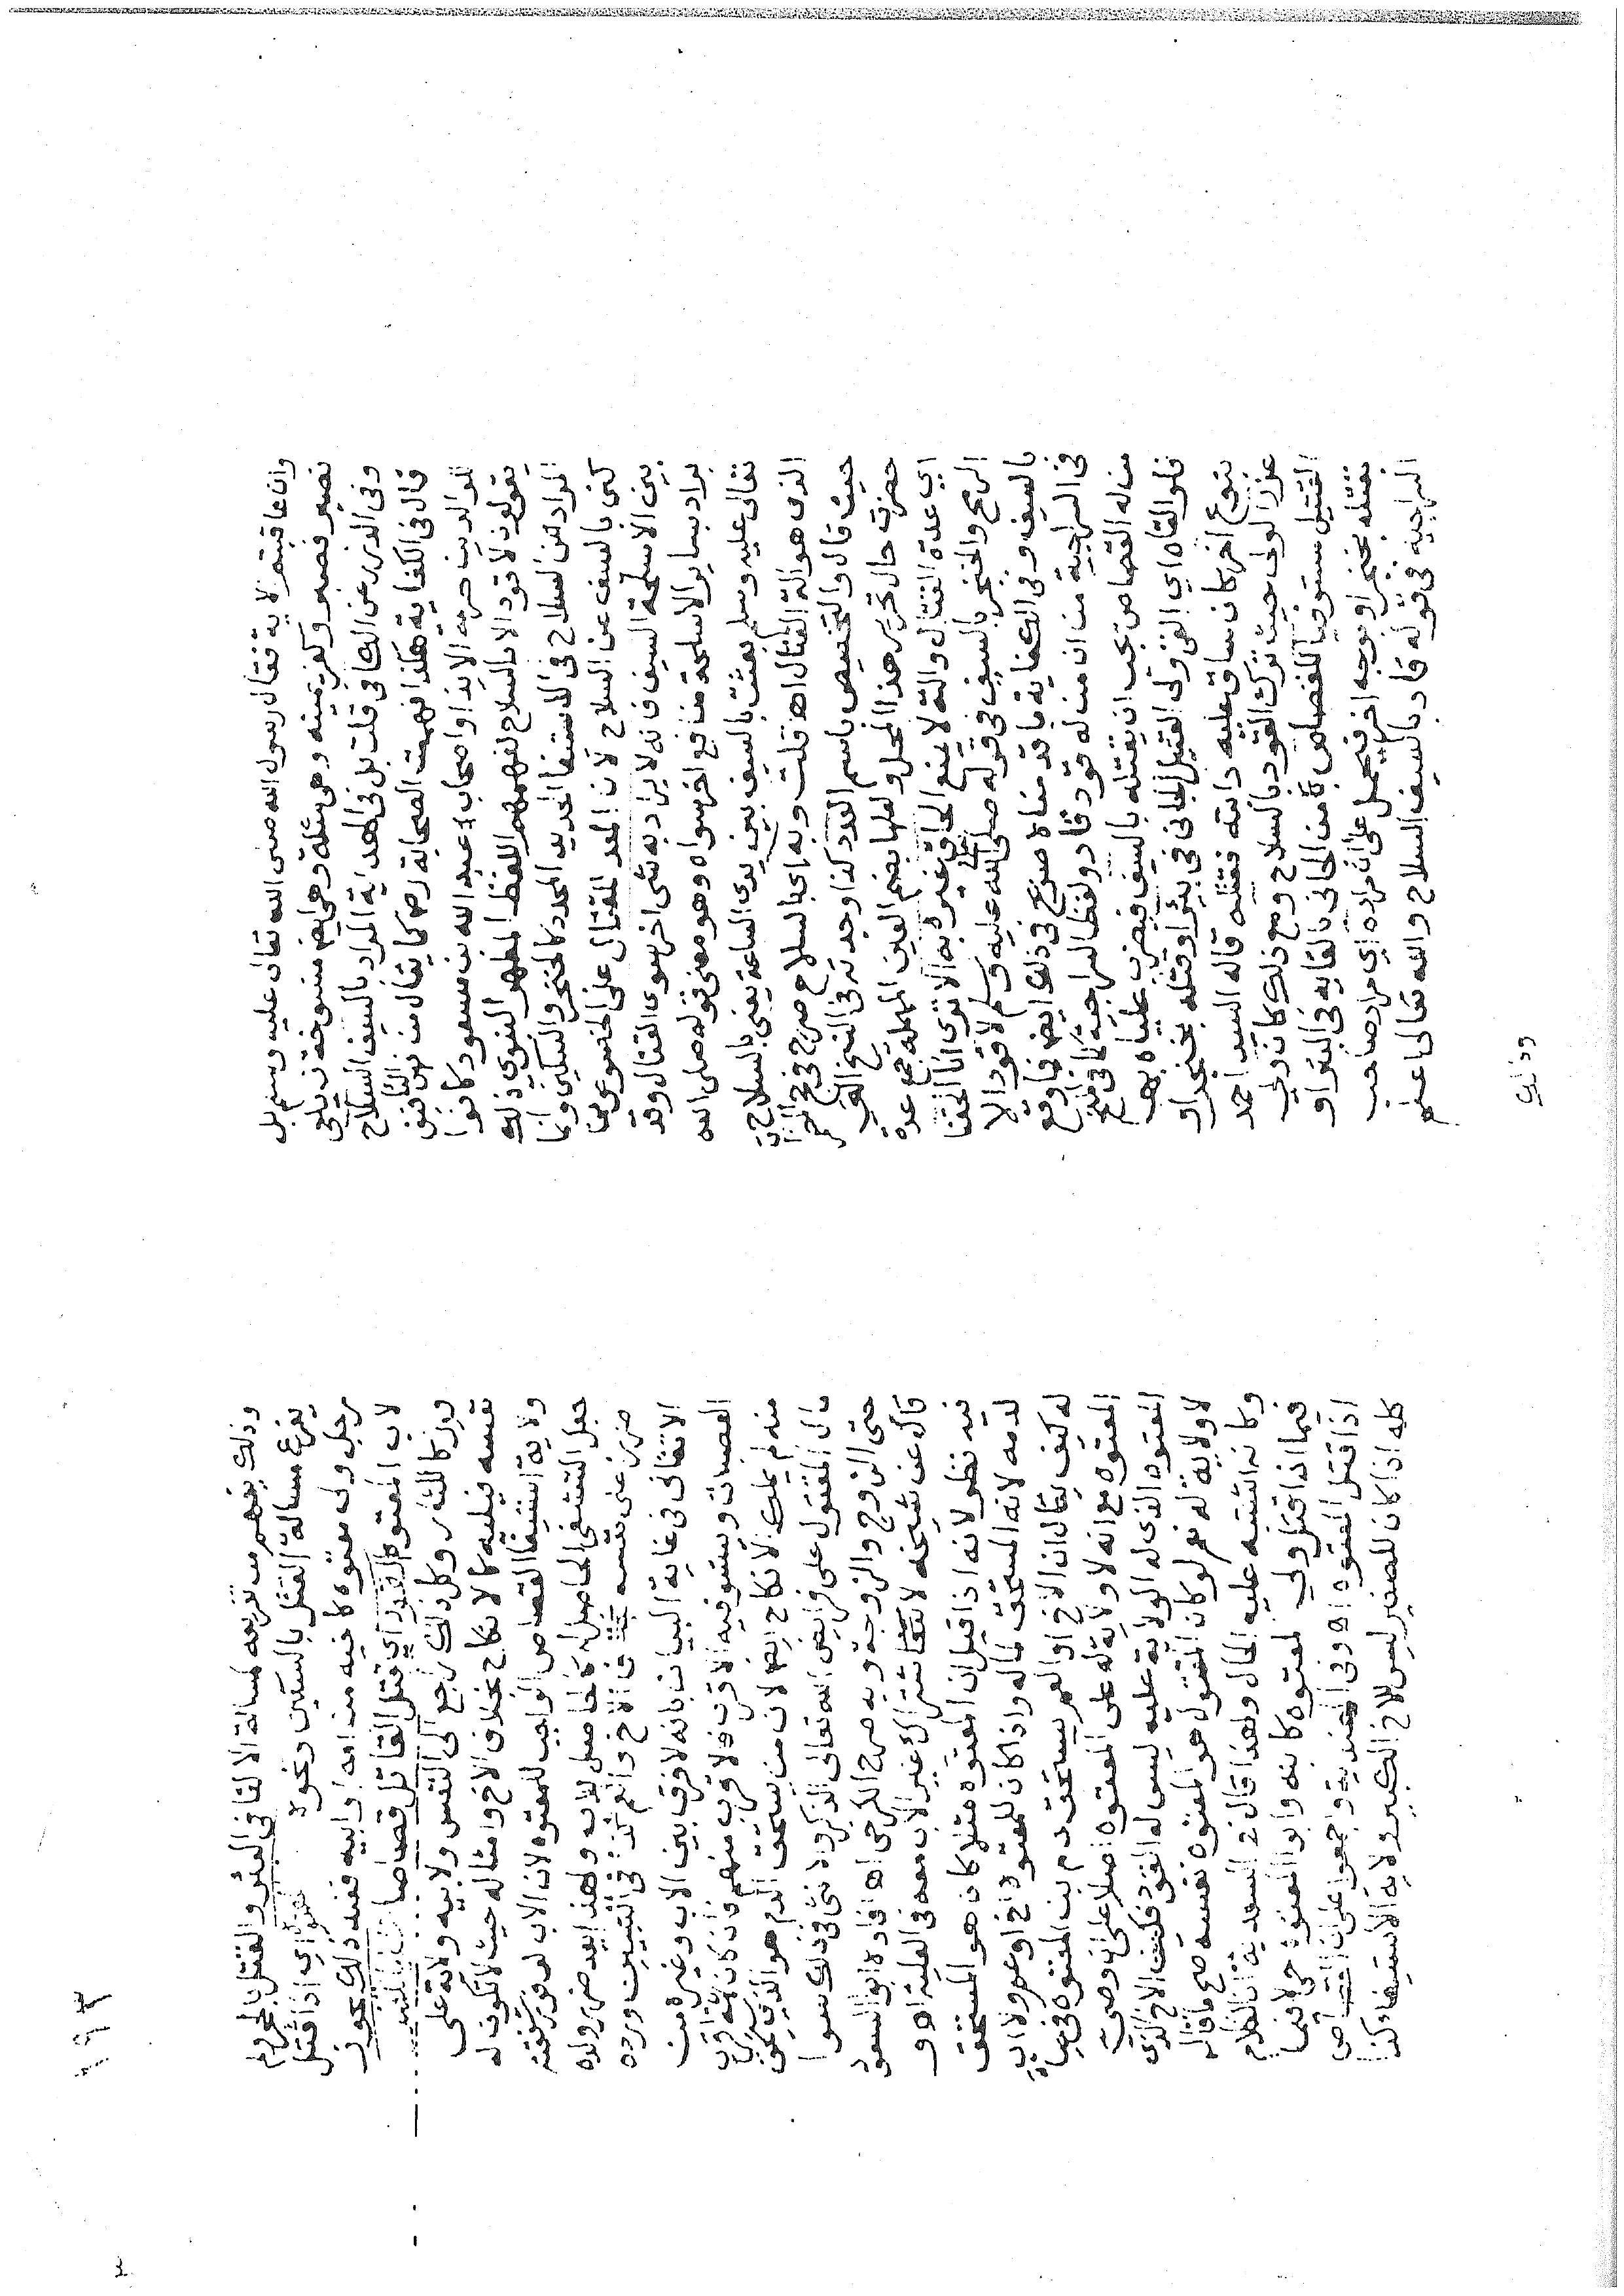 وان عاقبتم الاية فقال رسول الله صلى الله تعالى عليه وسلم بل
نصبر فصبر وكفر يمينه وهي مثلة وهي ايض منسوخة زيلعي
وفي الدرر عن الكافي قلت بل في الهداية المراد بالسيف السلاح
قال في الكفاية هكذا فهمت الصحابة رض كما يقال من نهى التافيف
للوالدين حرمة الايذا واصحاب عبد الله بن مسعود كانوا
يقولون لا قود الا بالسلاح لفهمهم اللفظ المطهر النبوي ذلك
المراد من السلاح في الاستيفا الحديد المحدد كالخنجر والسكين وانما
كنى بالسيف عن السلاح لان المعد للقتال على الخصوص من
بين الاسلحة السيف فانه لا يراد به شي اخر سوى القتال وقد
يراد بساير الاسلحة منافع اخر سواه وهو معنى قوله صلى الله
تعالى عليه وسلم بعثت بالسيف بين يدي الساعة يعني بالسلاح
الذي هو الة القتال اه قلت وبه اي بالسلاح صرح في
حيث قال والتخصيص باسم العدد كذا وجدته في النسخ التي
حضرت حال تحرير هذا المحل ولعلها بضم العين المهملة جمع عدة
اي عدة القتال والة لا يمنع الحاق غيره به الا ترى انا الحقنا
الرمح والخنجر بالسيف في قوله صلى الله عليه وسلم لا قود الا
بالسيف وفي الكفاية ما قدمناه صريح في ذلك ايض فما وقع
في السراجية من ان من له قود قاد ولفظ السراجية كما في المنح
من له القصاص يجب ان يقتله بالسيف فيضرب علياه بهر
فلو القاه اي القى ولي القتيل الجاني في بئر او قتله بخنجر او
بنوع اخر كان ساق عليه دابته فقتله قاله السيد احمد
عزر الولي حيث ترك القود بالسلاح ومع ذلك كان ولي
القتيل مستوفيا للقصاص من الجاني بالقايه في البئر او
بقتله بخنجر او بوجه اخر فيحمل على ان مراده اي مراد صاحب
السراجية في قوله قاد بالسيف السلاح والله تعالى اعلم
وذلك
وذلك يفهم من تفريعه لمسالة الالقا في البئر والقتل بالحجر ولم
يفرع مسالة القتل بالسكين ونحوه اي اذا قتل
رجل ولي معتوه كاخيه من امه او ابيه فعند ذلك يجوز
لاب المعتوه القود اي قتل القاتل قصاصا
قود كاللثار وكل ذلك راجع الى النفس ولابيه ولاية على
نفسه فيليه كالانكاح بخلاف الاخ وامثاله حيث لا تكون له
ولاية استيفا القصاص الواجب للمعتوه لان الاب لوفور شفقته
جعل التشفي الحاصل له كالحاصل لابنه ولهذا يعد ضرر ولده
ضررا على نفسه فالاخ والعم كذا في التبيين ورده
الاتقاني في غاية البيان بانه لا فرق بين الاب وغيره من
العصبات ويستوفيه الاقرب فالاقرب منهم فان كان ثمة اقرب
منه لم يملك الانكاح ايض لان من يستحق الدم هو الذي يستحق
مال المقتول على فرايض الله تعالى الذكر والانثى في ذلك سوا
حتى الزوج والزوجة وبه صرح الكرخي اه افاده ابو السعود
قال عن شيخه لا نقاش اشتراك غير الاب معه في العلية اه و
فيه نظر لانه اذا قيل ان المعتوه مثلا كان هو المستحق
لدمه لانه المستحق لماله واذا كان للمعتوه اخ او عم ولا اب
له كيف يقال ان الاخ او العم يستحق دم ابن المعتوه في حياة
المعتوه مع انه لا ولاية له على المعتوه اصلا على ان وصي
المعتوه الذي له الولاية عليه ليس له القود فكيف الاخ الذي
لا ولاية له نعم لو كان المقتول هو المعتوه نفسه صح ما قاله
وكانه اشتبه عليه الحال ولهذا قال في السعدية ان الكلام
فيما اذا قتل ولي المعتوه كابنه وابو المعتوه حي لا فيما
اذا قتل المعتوه اه وفي الهندية واجمعوا على ان القصاص
كله اذا كان للصغير ليس للاخ الكبير ولاية الاستيفاء كذا